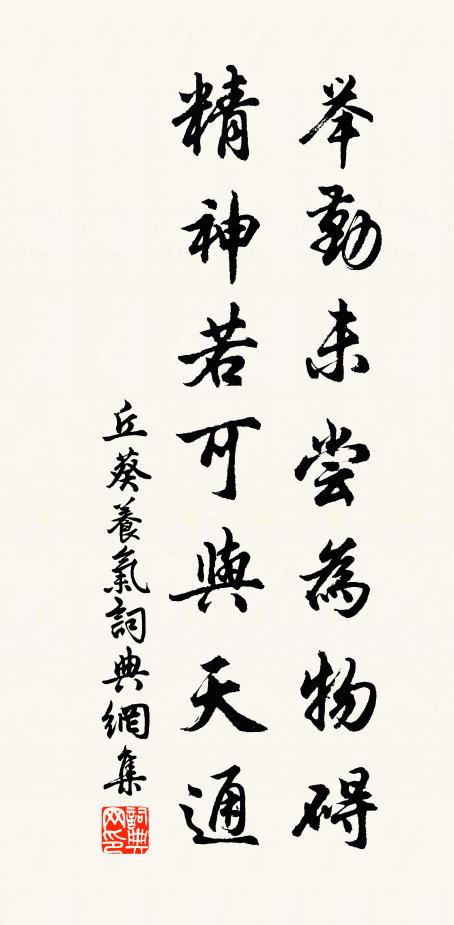 举勤未尝為物碍
精神若可與天通
丘葵養氣詞典網集
詞典网印